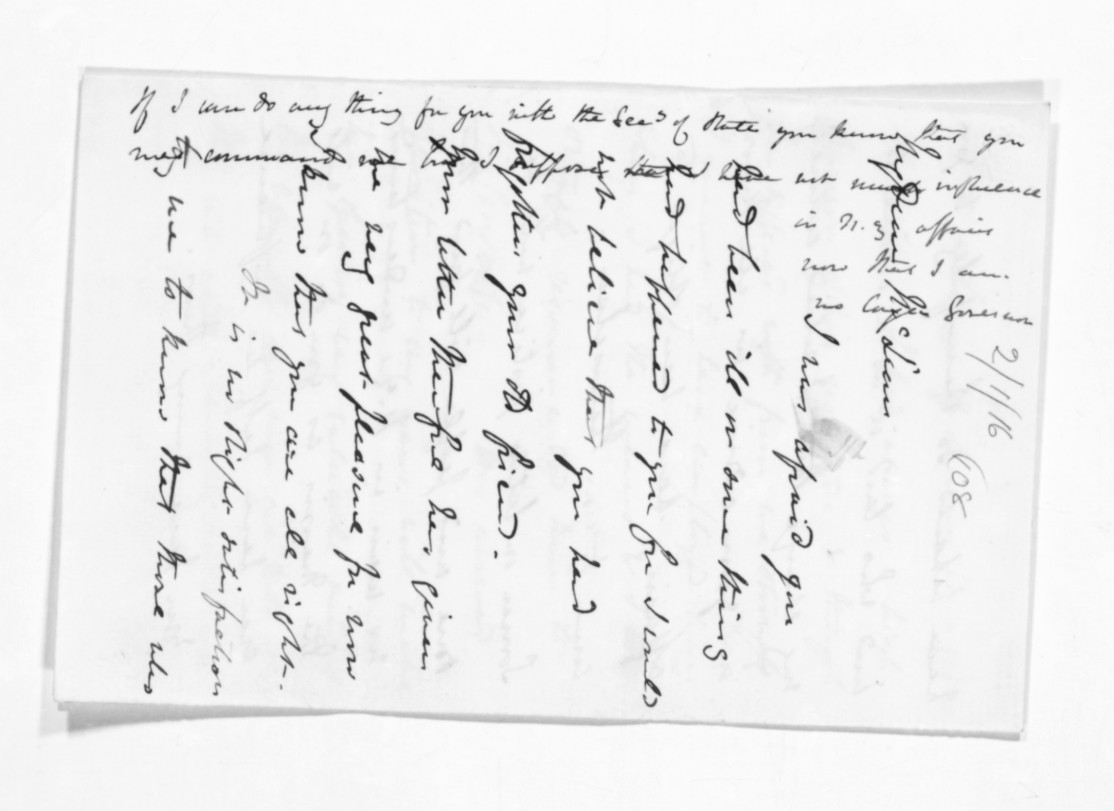 2/1/16
(08
My Dear McLean
I was afraid you
had been ill or some thing
had happened to you for I would
not believe that you had
forgotten your old friend.
Your letter therefore has given
me very great pleasure for now
I know that you are all right.
It is no slight satisfaction
to me to know that those who
If I can do any thing for you with the Secy of State you know that you
may command me but I suppose that I have not much influence
in N.Z. affairs
now that I am
no longer Governor